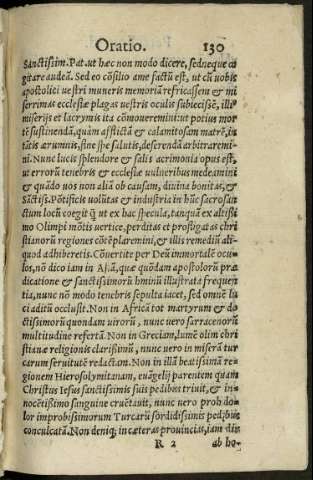 Oratio. 130
Sanctissim. Pat. ut hæc non modo dicere, sed neque co
gitare audeā. Sed eo cōsilio a me factū est, ut cū vobis
apostolici uestri muneris memoriā refricassem & mi
serrimas ecclesiæ plagas uestris oculis subiecissē, illi⁹
miserijs et lacrymis ita cōmoueremini: ut potius mor
tē sustinendā, quàm afflictā & calamitosam matrē, in
tātis ærumnis, sine spe salutis, deserendā arbitraremi⸗
ni. Nunc lucis splendore & salis acrimonia opus est,
ut errorū tenebris & ecclesiæ vulneribus medeamini
& quādo uos non aliā ob causam, diuina bonitas, &
Sāctiss. Pōtificis volūtas & industria in hūc sacrosan
ctum locū coegit q̄ ut ex hac specula, tanquā ex altissi
mo Olimpi mōtis uertice, perditas et prostigatas chri
stianorū regiones cōtēplaremini, & illis remediū ali⸗
quod adhiberetis. Cōuertite per Deū immortalē ocu⸗
los, nō dico iam in Asiā, quæ quōdam apostolorū præ
dicatione & sanctissimorū hominū illustrata frequen
tia, nunc nō modo tenebris sepulta iacet, sed omnē lu
ci aditū occlusit. Non in Africā tot martyrum & do
ctissimorū quondam uirorū, nunc uero sarracenorū
multitudine refertā. Non in Greciam, lumē olim chri
stianæ religionis clarissimū, nunc uero in miserā tur
carum seruitutē redactam. Non in illā beatissimā re⸗
gionem Hierosolymitanam, euāgelij parentem quam
Christus Iesus sanctissimis suis pedibus triuit, & in⸗
nocētissimo sanguine cruētauit, nunc uero proh do⸗
lor improbissimorum Turcarū sordidissimis pedibus
conculcatā. Non deniq; in cæteras prouincias, iam diu
R 2 ab ho⸗